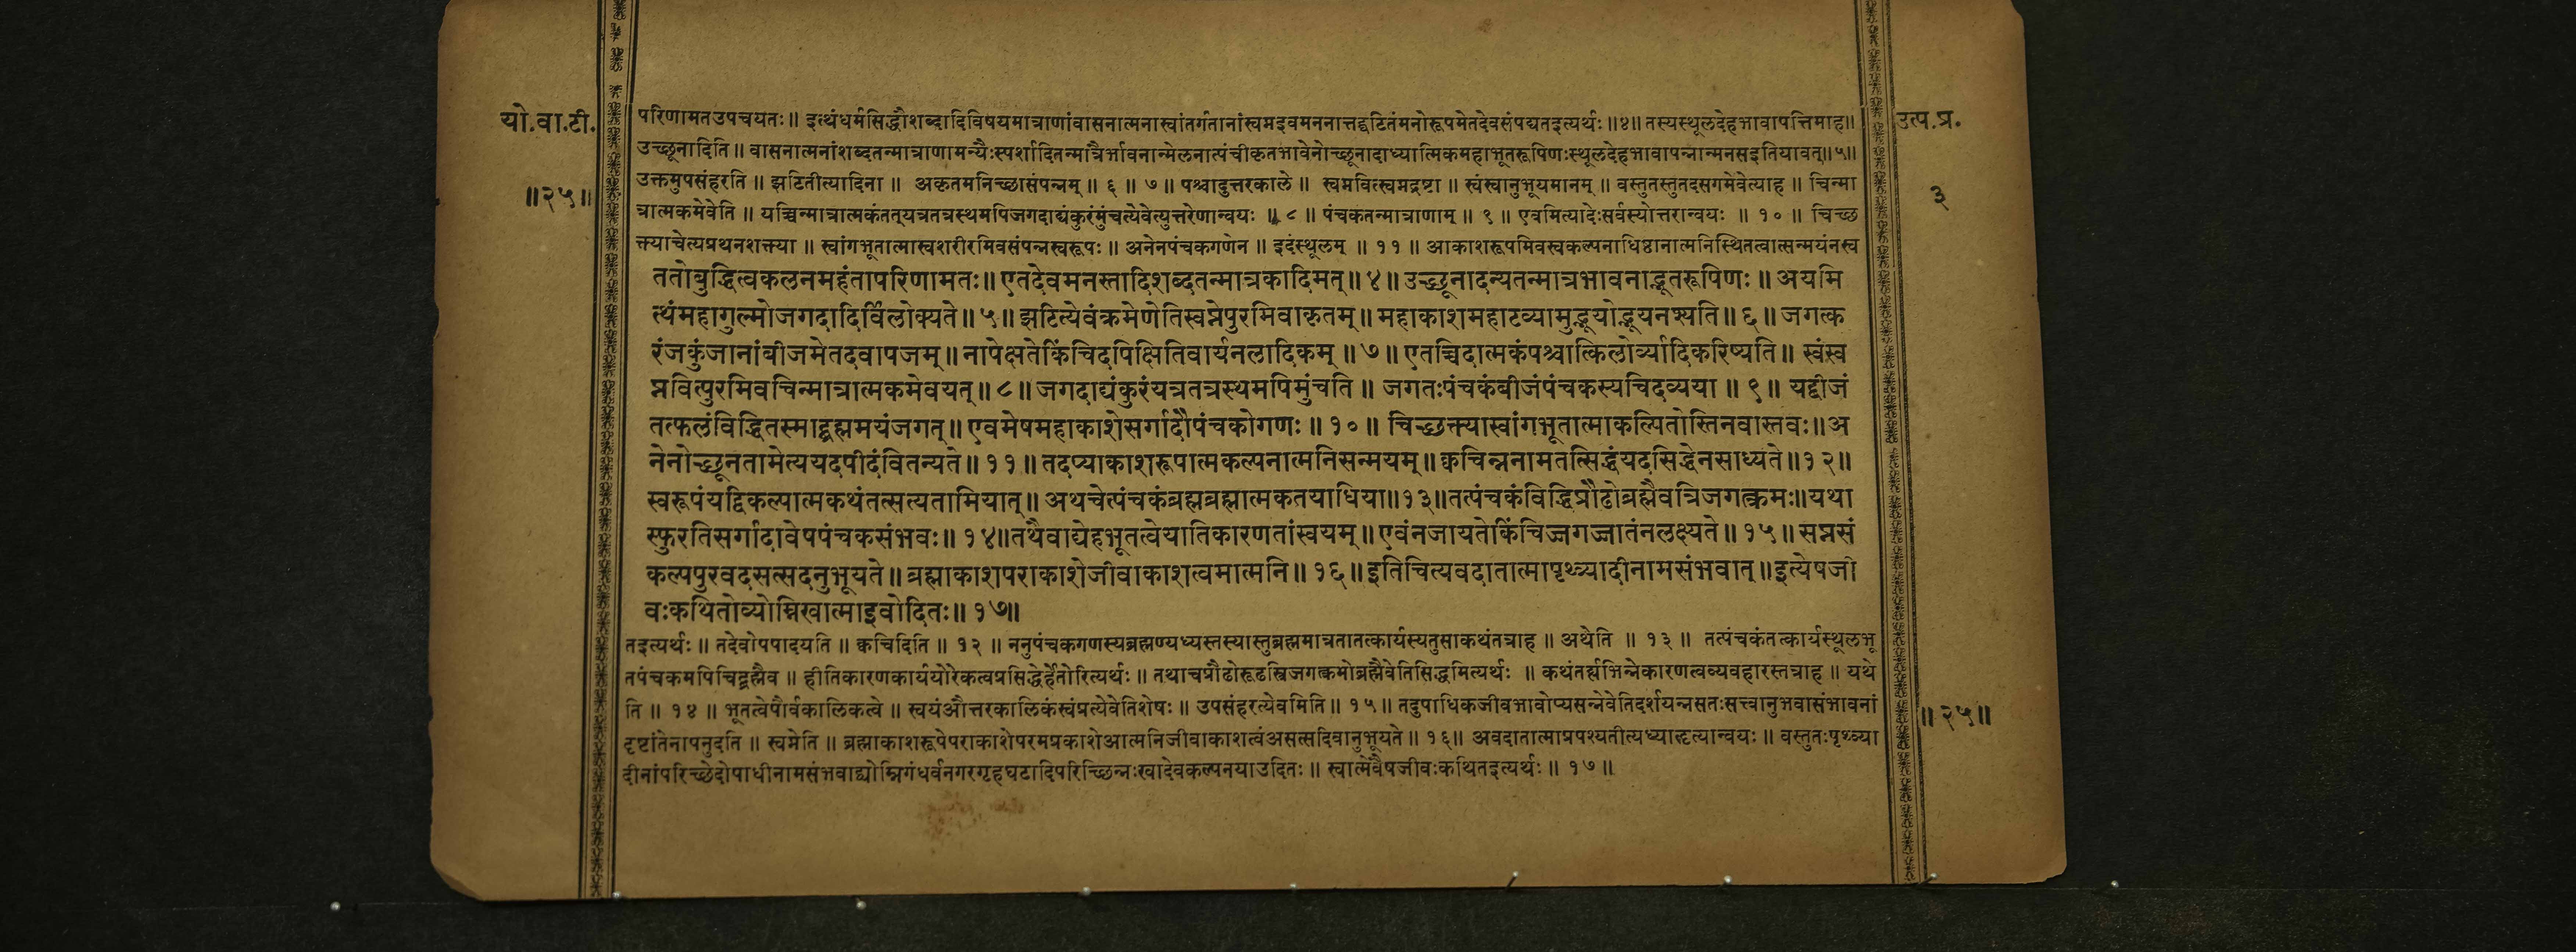 यो.वा.टी.
॥२५॥
परिणामतउपचयतः॥ इत्थंधर्मसिद्धौशब्दादिविषयमात्राणांवासनात्मनास्वांतर्गतानांस्वमइवमननात्तद्घटितंमनोरूपमेतदेवसंपद्यतइत्यर्थः॥४॥ तस्यस्थूलदेहभावापत्तिमाह॥
उच्छूनादिति॥ वासनात्मनांशब्दतन्मात्राणामन्यैःस्पर्शादितन्मात्रैर्भावनान्मेलनात्पंचीकृतभावेनोच्छूनादाध्यात्मिकमहाभूतरूपिणःस्थूलदेहभावापन्नान्मनसइतियावत्॥५॥
उक्तमुपसंहरति॥ झटितीत्यादिना॥ अकृतमनिच्छासंपन्नम्॥ ६ ॥ ७ ॥ पश्चादुत्तरकाले॥ स्वमवित्स्वमद्रष्टा॥ स्वंस्वानुभूयमानम्॥ वस्तुतस्तुतदसगमेवेत्याह॥ चिन्मा
त्रात्मकमेवेति॥ यच्चिन्मात्रात्मकंतत्यत्रतत्रस्थमपिजगदाद्यंकुरंमुंचत्येवेत्युत्तरेणान्वयः ॥ ८ ॥ पंचकतन्मात्राणाम्॥ ९ ॥ एवमित्यादेःसर्वस्योत्तरान्वयः ॥ १० ॥ चिच्छ
क्त्याचेत्यप्रथनशक्त्या॥ स्वांगभूतात्मास्वशरीरमिवसंपन्नस्वरूपः॥ अनेनपंचकगणेन॥ इदंस्थूलम् ॥ ११ ॥ आकाशरूपमिवस्वकल्पनाधिष्ठानात्मनिस्थितत्वात्सन्मयंनस्व
ततोबुद्धित्वकलनमहंतापरिणामतः॥ एतदेवमनस्तादिशब्दतन्मात्रकादिमत्॥४॥ उच्छूनादन्यतन्मात्रभावनाद्भूतरूपिणः॥ अयमि
त्थंमहागुल्मोजगदादिर्विलोक्यते॥५॥ झटित्येवंक्रमेणेतिस्वप्नेपुरमिवाकृतम्॥ महाकाशमहाटव्यामुद्भूयोद्भूयनश्यति॥६॥ जगत्क
रंजकुंजानांबीजमेतदवापजम्॥ नापेक्षतेकिंचिदपिक्षितिवार्यनलादिकम्॥७॥ एतच्चिदात्मकंपश्चात्किलोर्व्यादिकरिष्यति॥ स्वंस्व
प्नवित्पुरमिवचिन्मात्रात्मकमेवयत्॥८॥ जगदाद्यंकुरंयत्रतत्रस्थमपिमुंचति॥ जगतःपंचकंबीजंपंचकस्यचिदव्यया॥९॥ यद्बीजं
तत्फलंविद्धितस्माद्ब्रह्ममयंजगत्॥ एवमेषमहाकाशेसर्गादौपंचकोगणः॥१०॥ चिच्छक्त्यास्वांगभूतात्माकल्पितोस्तिनवास्तवः॥अ
नेनोच्छूनतामेत्ययदपीदंवितन्यते॥११॥ तदप्याकाशरूपात्मकल्पनात्मनिसन्मयम्॥क्वचिन्ननामतत्सिद्धंयदसिद्धेनसाध्यते॥१२॥
स्वरूपंयद्विकल्पात्मकथंतत्सत्यतामियात्॥ अथचेत्पंचकंब्रह्मब्रह्मात्मकतयाधिया॥१३॥तत्पंचकंविद्धिप्रौढोब्रह्मैवत्रिजगत्क्रमः॥यथा
स्फुरतिसर्गादावेषपंचकसंभवः॥१४॥तथैवाद्येहभूतत्वेयातिकारणतांस्वयम्॥एवंनजायतेकिंचिज्जगज्जातंनलक्ष्यते॥१५॥ सप्नसं
कल्पपुरवदसत्सदनुभूयते॥ब्रह्माकाशपराकाशेजीवाकाशत्वमात्मनि॥१६॥इतिचित्यवदातात्मापृथ्व्यादीनामसंभवात्॥इत्येषजी
वःकथितोव्योम्निखात्माइवोदितः॥१७॥
तइत्यर्थः॥ तदेवोपपादयति॥ क्वचिदिति॥ १२ ॥ ननुपंचकगणस्यब्रह्मण्यध्यस्तस्यास्तुब्रह्ममात्रतातत्कार्यस्यतुसाकथंतत्राह॥ अथेति ॥ १३ ॥ तत्पंचकंतत्कार्यस्थूलभू
तपंचकमपिचिद्ब्रह्मैव॥ हीतिकारणकार्ययोरेकत्वप्रसिद्धेर्हेतोरित्यर्थः॥ तथाचप्रौढोरूढस्त्रिजगत्क्रमोब्रह्मैवेतिसिद्धमित्यर्थः ॥ कथंतर्ह्यभिन्नेकारणत्वव्यवहारस्तत्राह॥ यथे
ति॥ १४ ॥ भूतत्वेपौर्वकालिकत्वे॥ स्वयंऔत्तरकालिकंस्वंप्रत्येवेतिशेषः॥ उपसंहरत्येवमिति॥ १५॥ तदुपाधिकजीवभावोप्यसन्नेवेतिदर्शयन्नसतःसत्त्वानुभवासंभावनां
दृष्टांतेनापनुदति॥ स्वमेति॥ ब्रह्माकाशरूपेपराकाशेपरमप्रकाशेआत्मनिजीवाकाशत्वंअसत्सदिवानुभूयते॥ १६॥ अवदातात्माप्रपश्यतीत्यध्याहृत्यान्वयः॥ वस्तुतःपृथ्व्या
दीनांपरिच्छेदोपाधीनामसंभवाद्व्योम्निगंधर्वनगरगृहघटादिपरिच्छिन्नःखादेवकल्पनयाउदितः॥ स्वात्मेवैषजीवःकथितइत्यर्थः॥ १७॥
उत्प.प्र.
३
॥२५॥